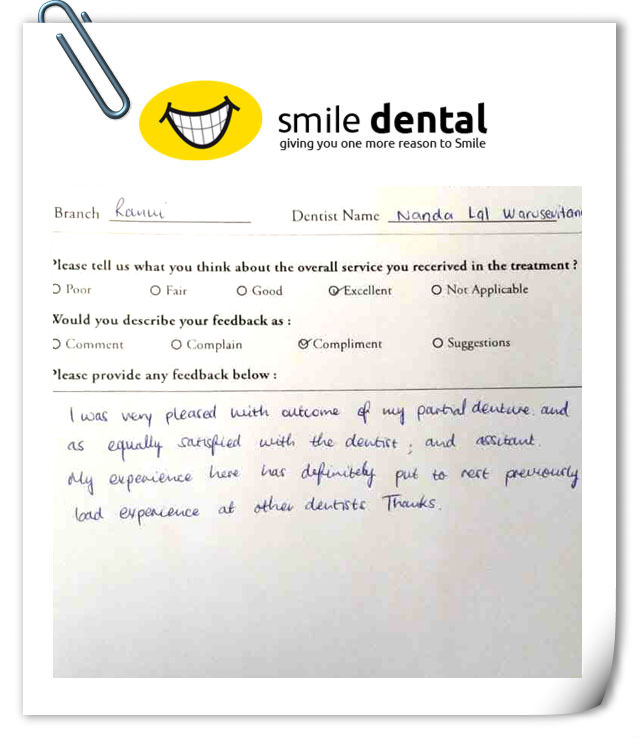 smile dental
giving you one more reason to Smile
Branch Ranui Dentist Name Nanda Lal Warusevitan
Please tell us what you think about the overall service you recerived in the treatment ?
O Poor O Fair O Good O Excellent O Not Applicable
Would you describe your feedback as :
O Comment O Complain O Compliment O Suggestions
Please provide any feedback below :
I was very pleased with outcome of my partial denture. and
as equally satisfied with the dentist, and assitant.
My experience here has definitely put to rest previously
bad experience at other dentists Thanks.